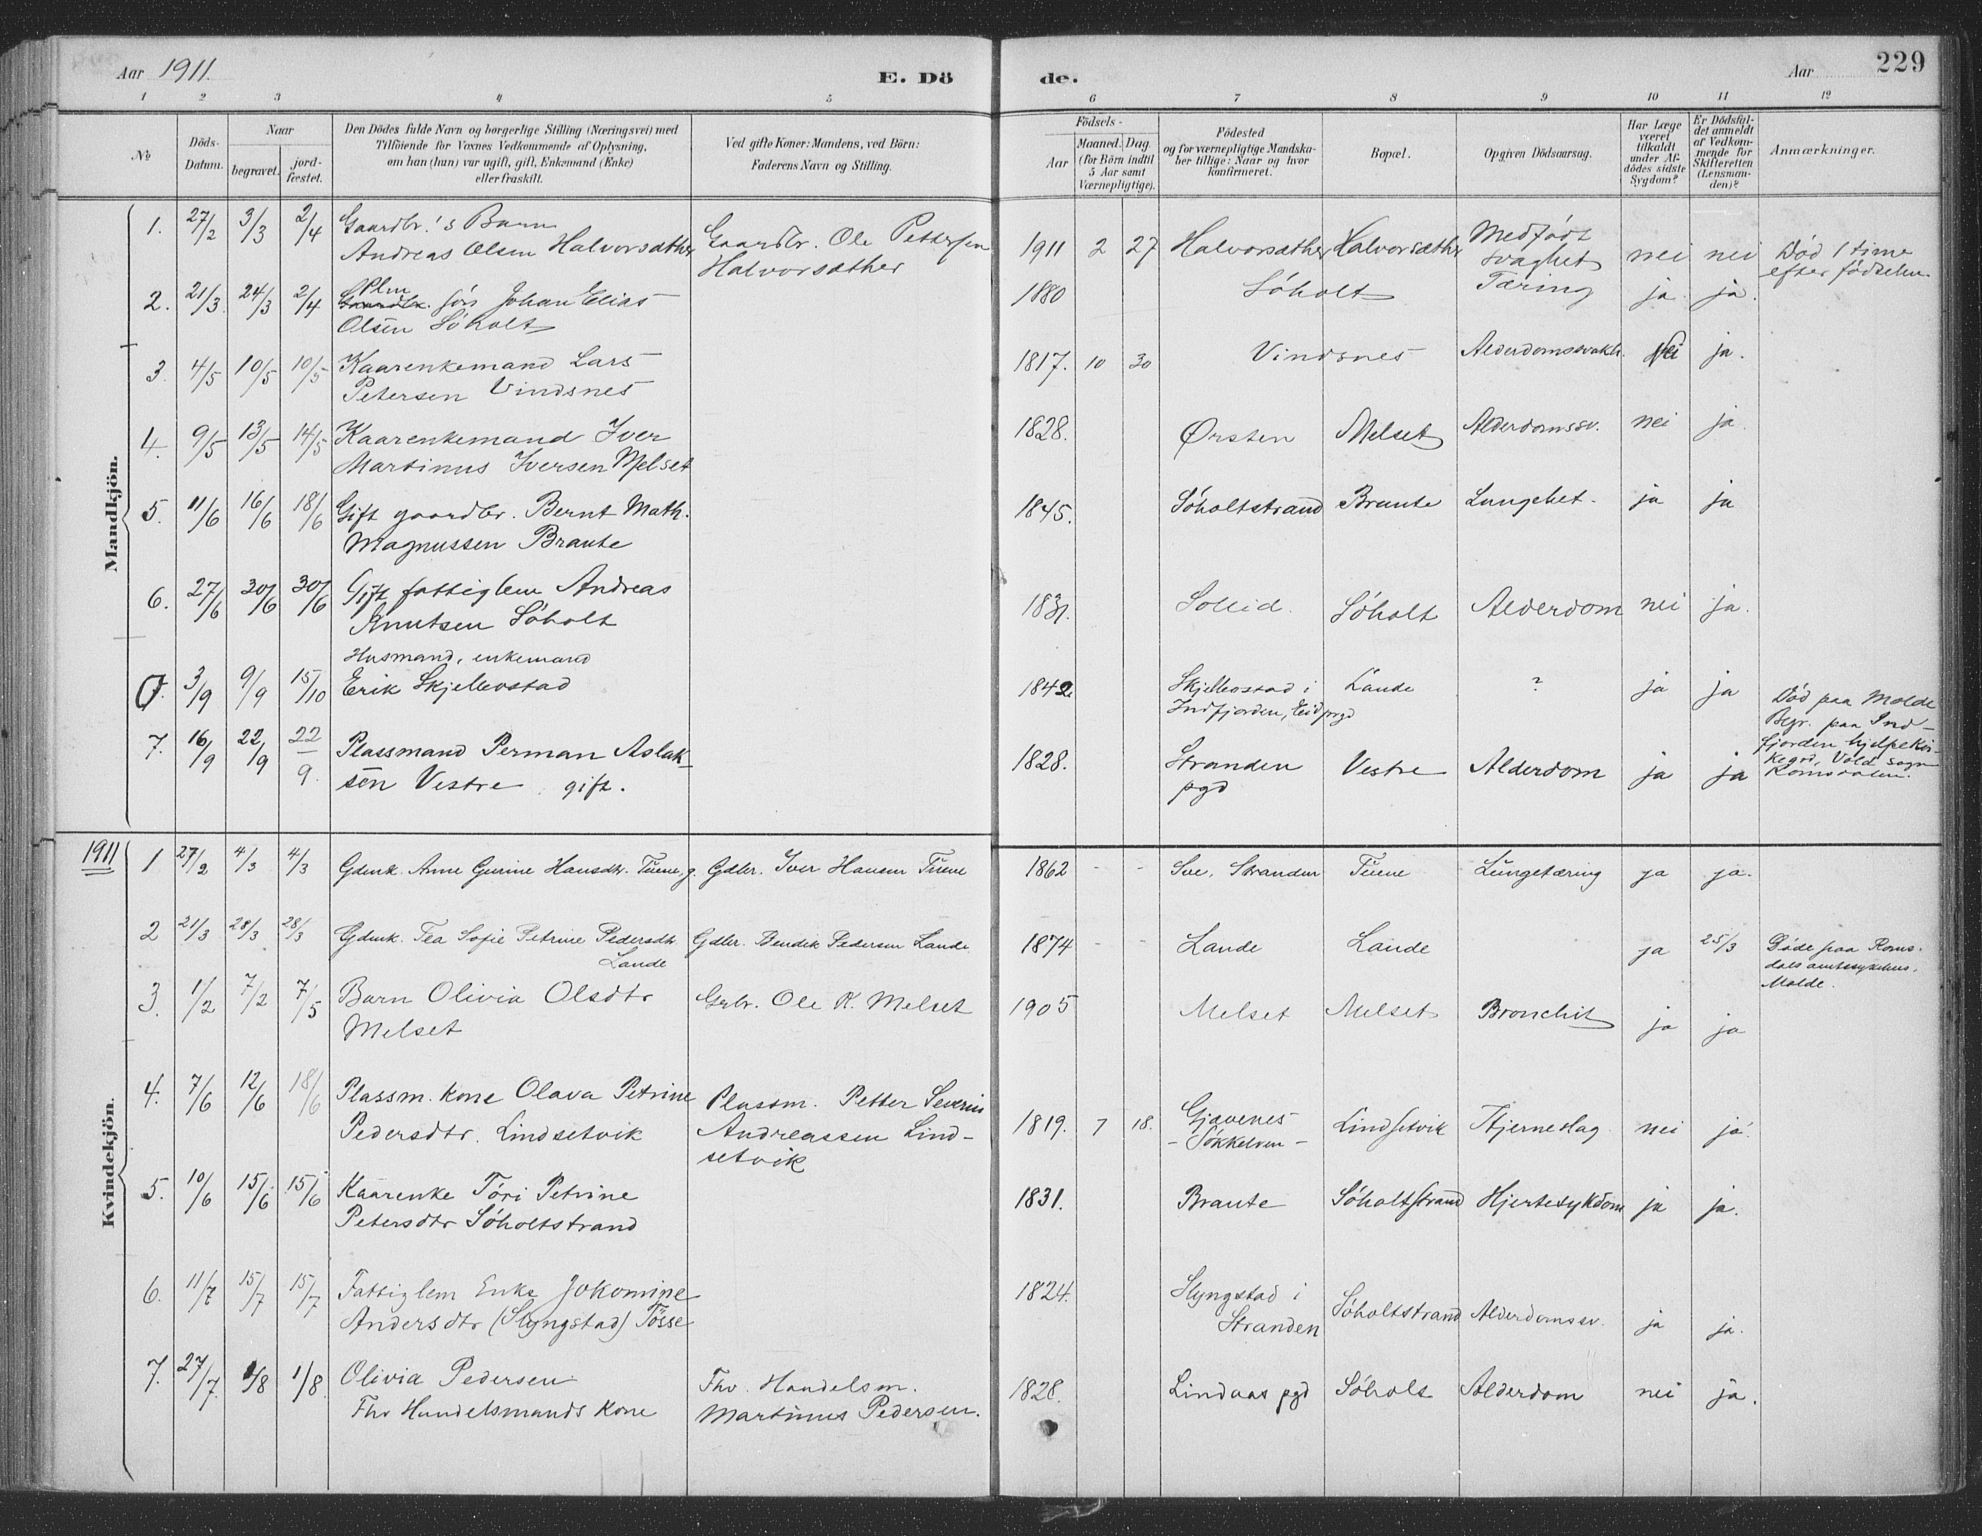 Aar 1911. E. Dö
de. Aar 229
1 2 3 4 5
6 7 8 9 10 11 12
No
Döds-Datum.
Naar
begravet.
jord-fæstet.
Den Dödes fulde Navn og borgerlige Stilling (Næringsvei) med
Tilföiende for Voxnes Vedkommende af Oplysning,
om han (hun) var ugift, gift, Enkemand (Enke)
eller fraskilt.
Ved gifte Koner: Mandens, ved Börn:
Faderens Navn og Stilling.
Födsels-
Aar
Maaned. Dag.
(for Börn indtil
5 Aar samt
Værnepligtige).
Födested
og for værnepligtige Mandska-
ber tillige: Naar og hvor
konfirmeret.
Bopæl.
Opgiven Dödsaarsag.
Har Læge
været
tilkaldt
under Af-
dödes sidste
Sygdom?
Er Dödsfal-
det anmeldt
af Vedkom-
mende for
Skifteretten
(Lensman-
den)?
Anmærkninger.
Mandkjön.
1. 27/2 3/3 2/4 Gaardbr.'s Barn
Andreas Olsen Halvorsæther Gaardbr. Ole Pettersen
Halvorsæther
1911 2 27 Halvorsæther Halvorsæther Medfødt
svaghet nei nei Død 1 time
efter fødselen.
2. 21/3 24/3 2/4 Plm
Gaardbr. søn Johan Elias
Olsen Søholt
1880 Søholt Tæring ja. ja.
3. 4/5 10/5 10/5 Kaarenkemand Lars
Petersen Vindsnes
1817. 10 30 Vindsnes Alderdomssvakh. Nei ja.
4. 9/5 13/5 14/5 Kaarenkemand Iver
Martinus Iversen Melset
1828. Ørsten Melset Alderdomssv. nei ja
5. 11/6 16/6 18/6 Gift gaardbr. Bernt Math.
Magnussen Braute
1845. Søholtstrand Braute Lungebet. ja ja
6. 27/6 30/6 30/6 Gift fattiglem Andreas
Knutsen Søholt
1831. Sollid. Søholt Alderdom nei ja.
Husmand, enkemand
0. 3/9 9/9 15/10 Erik Skjellevstad
1842 Skjellevstad i
Indfjorden, Eid prgd Lande ? ja ja Død paa Molde
Begr. paa Ind-
fjorden hjelpekir-
kegrd, Vold sogn
Romsdalen.
7. 16/9 22/9 22/9. Plassmand Perman Aslak-
sen Vestre gift.
1828. Stranden
pgd Vestre Alderdom ja ja
1911
Kvindekjön.
1 27/2 4/3 4/3 Gdmk. Anne Gurine Hansdtr. Tuene, g. Gdbr. Iver Hansen Tuene
1862 - - Sve, Stranden Tuene Lungetæring ja ja.
2 21/3 28/3 28/3 Gdmk. Tea Sofie Petrine Pedersdtr.
Lande Gdbr. Bendik Pedersen Lande
1874 - - Lande Lande ja 25/3 Døde paa Roms-
dals amtssykehus,
Molde.
3. 1/2 7/2 7/5 Barn Olivia Olsdtr
Melset Grbr. Ole K. Melset
1905 Melset Melset Bronchit ja ja
4. 7/6 12/6 18/6 Plassm. kone Olava Petrine
Pedersdtr. Lindsetvik Plassm. Petter Severin
Andreassen Lind-
setvik
1819. 7 18. Gjævenes
- Søkkelven - Lindsetvik Hjerneslag. nei ja.
5. 10/6 15/6 15/6 Kaarenke Töri Petrine
Petersdtr Søholtstrand
1831. Braute Søholtstrand Hjertesykdom ja ja.
6. 11/7 15/7 15/7 Fattiglem Enke Jokomine
Andersdtr (Slyngstad) Tösse
1824. Slyngstad i
Stranden Søholtstrand Alderdomssv. ja ja.
7. 27/7. 1/8 1/8. Olivia Pedersen
Fhv Handelsmands kone Fhv. Handelsm.
Martinus Pedersen.
1828. Lindaas pgd Søholt Alderdom nei ja.